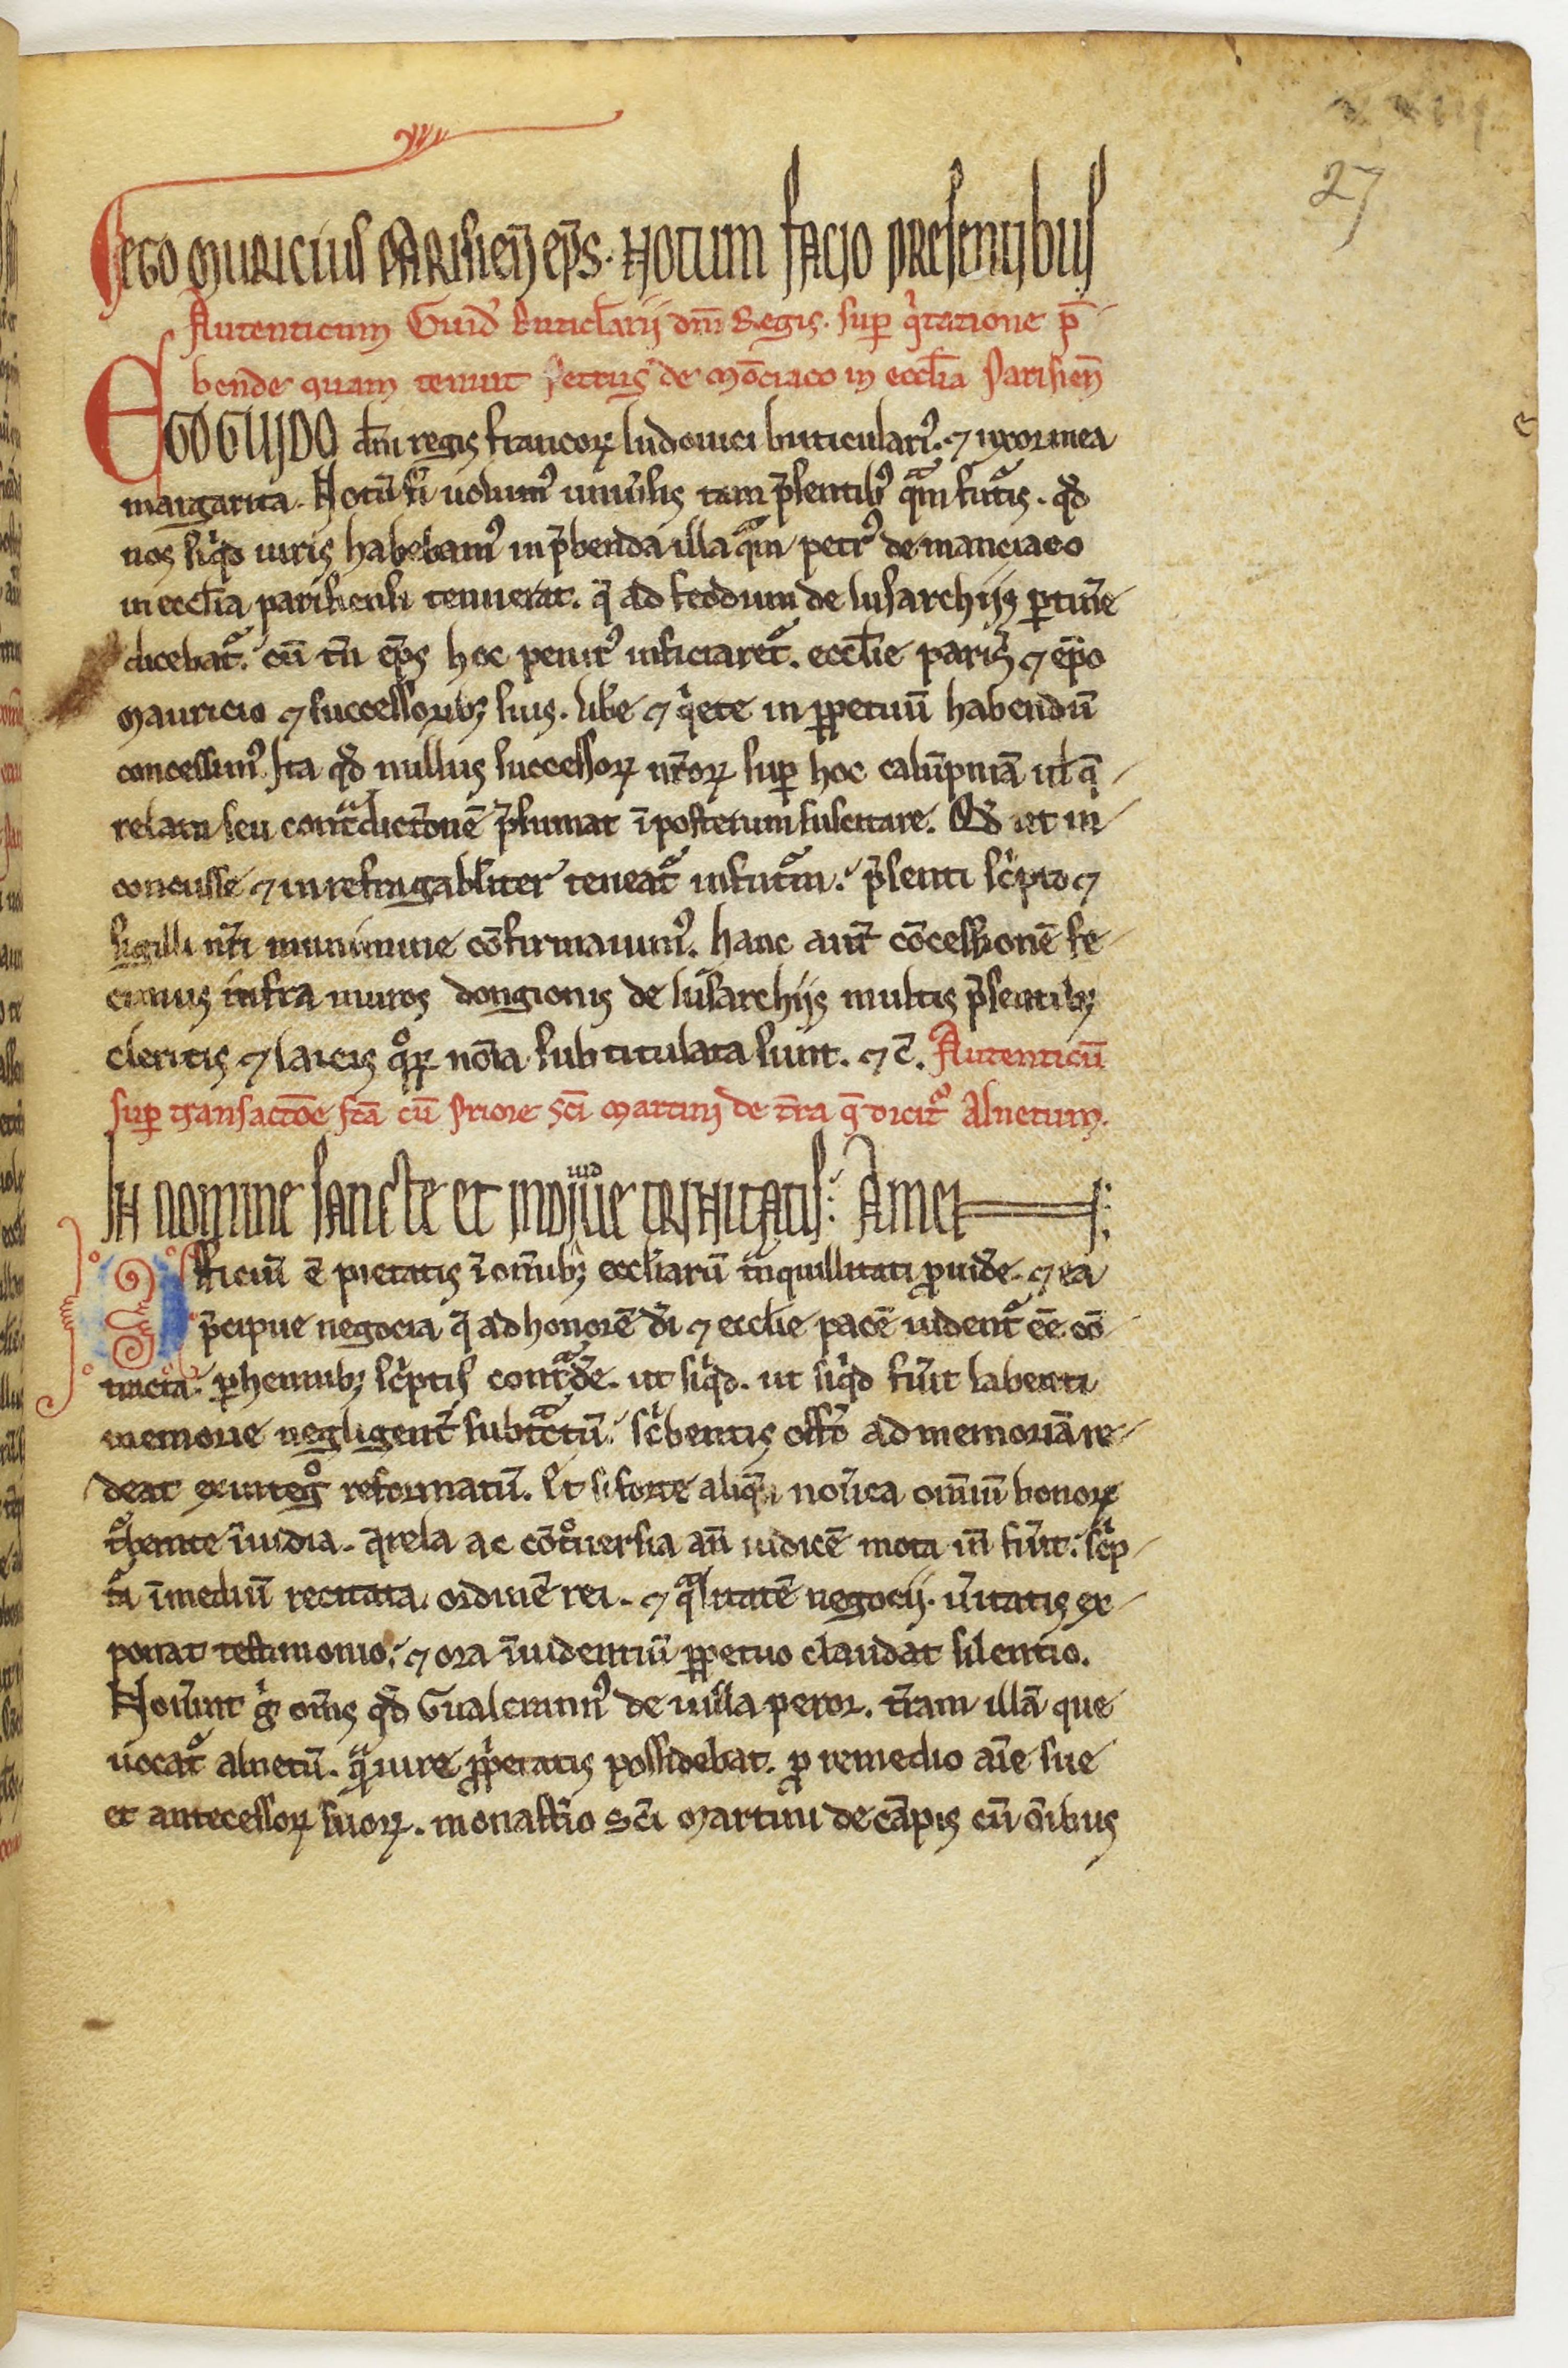 27
Ego Mauricius Parisieñ ep̃s. Notum facio presentibus
Autenticum Guid' buticl̃arij dñi Regis. sup q'tatione p̃
bende quam tenuit Petrus de Mõciaco in eccl̃ia Parisieñ
EGO GUIDO dñi regis francoꝝ ludouici buticulari᷒. ⁊ uxor mea
margarita. Notũ fi̾i uolum᷒ uniu̾sis tam p̃sentib᷒ qᵃm futˀis. qd̃
nos siqⁱd iuris habebam᷒ in p̃benda illa qᵃm petr᷒ de manciaco
in eccl̃ia parisiensi tenuerat. q̃ ad feodum de lusarchijs ꝑtine̾
dicebatˀ. cũ tñ ep̃s hoc penit᷒ inficiaretˀ. eccl̃ie paris̾ ⁊ ep̃o
Mauricio ⁊ successoribꝫ suis. libe̾ ⁊ qⁱete in ꝑpetuũ habendũ
concessim᷒. Ita qd̃ nullus successoꝝ nr̃oꝝ suꝑ hoc calũpniã ul̃ q̃
relam seu contᵃdict̾onẽ p̃sumat ĩposterum suscitare. Qd̃ ut in
concusse ⁊ inrefragabl̃iter teneatˀ in futˀm. p̃senti scⁱpto ⁊
sigilli nr̃i munimine cõfirmauim᷒. hanc aut̃ cõcessionẽ fe
cimus infra muros dongionis de lusarchijs multis p̃sentibꝫ
clericis ⁊ laicis qᵒꝝ nõia subtitulata sunt. ⁊ c̃. Autenticũ
suꝑ transactõe fc̃a cũ Priore Sc̃i Martini de tr̃a q̃ dicitˀ Alnetum.
IN nomine sancte et indiuidue trinitatis. Amen
Officiũ ẽ pietatis ĩ om̃ibꝫ eccl̃iarũ tᵃnquillitati ꝓuide̾. ⁊ ea
p̃cipue negocia q̃ ad honorẽ dĩ ⁊ eccl̃ie pacẽ uidentˀ eẽ cõ
iuncta. ꝑhennibꝫ scⁱptis contᵃde̾. ut siqⁱd. ut siqⁱd fu̾it labenti
memorie negligent̾ subtᵃctũ. scⁱbentis offõ ad memoriã re
deat ex integᵒ reformatũ. Et si forte aliqᵃ noĩua om̃iũ bonoꝝ
tˀbante ĩuidia. q̃rela ac cõtᵒuersia añ iudicẽ mota iñ fu̾it. scⁱp
tᵃ ĩ mediũ recitata. ordinẽ rei. ⁊ qᵃlitatẽ negocij. u̾itatis ex
ponat testimonio. ⁊ ora ĩuidentiũ ꝑpetuo claudat silentio.
Nou̾int gⁱ om̃s qd̃ Gualerann᷒ de uilla peror. tr̃am illã que
uocatˀ alnetũ. qᵃm iure ꝓpⁱetatis possidebat. ꝓ remedio aĩe sue
et antecessoꝝ suoꝝ. monast̾io Sc̃i Martini de cãpis cũ oĩbus